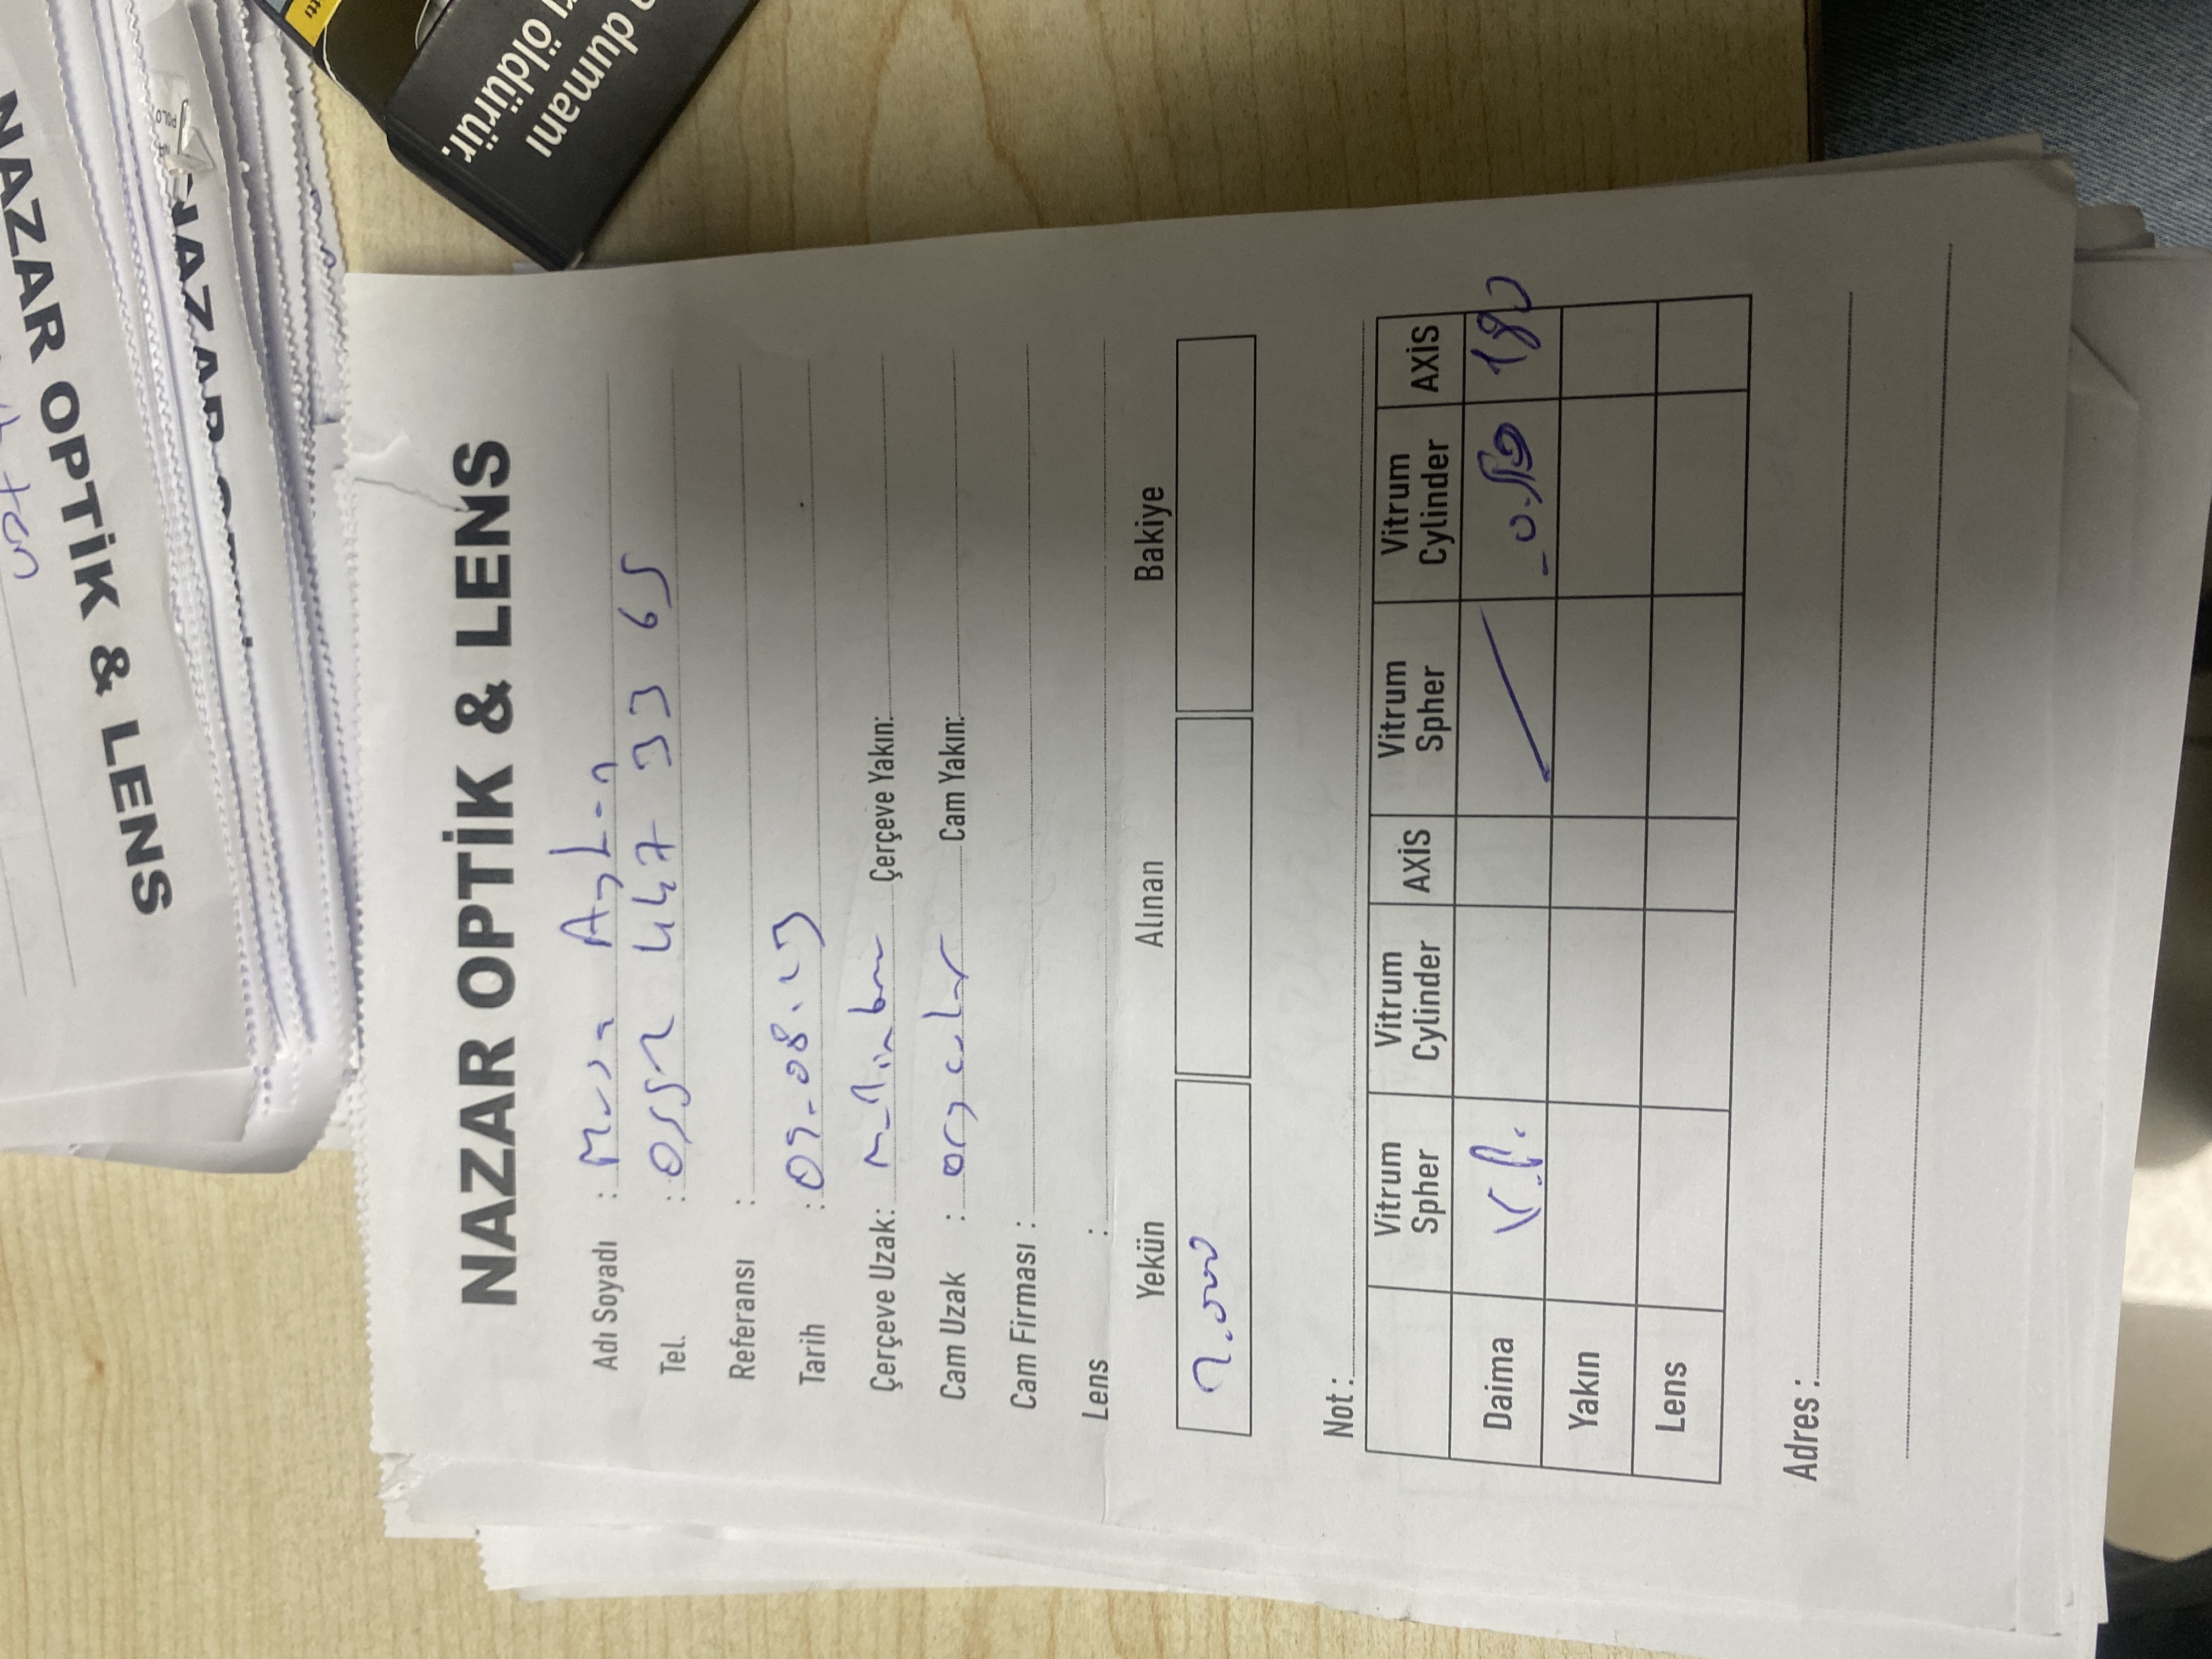 NAZAR OPTİK & LENS
NAZAR
NAZAR OPTİK & LENS
Adı Soyadı : Musa Ayhan
Tel. : 0552 447 33 65
Referansı :
Tarih : 09-08.23
Çerçeve Uzak: Çerçeve Yakın:
Cam Uzak : Cam Yakın:
Cam Firması :
Lens :
Yekün Alınan Bakiye
2.000
Not :
Vitrum Spher Vitrum Cylinder AXİS Vitrum Spher Vitrum Cylinder AXİS
Daima V.P. -0.50 180
Yakın
Lens
Adres :
dumanı
öldürür.